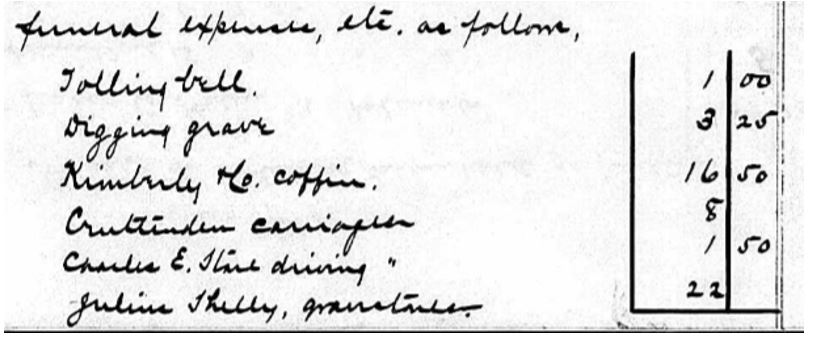 funeral expenses, etc. as follows,
Tolling bell. 1 00
Digging grave 3 25
Kimberly & Co. coffin. 16 50
Cruttenden carriages 8
Charles E. Stone driving " 1 50
Julius Shelly, gravestones. 22